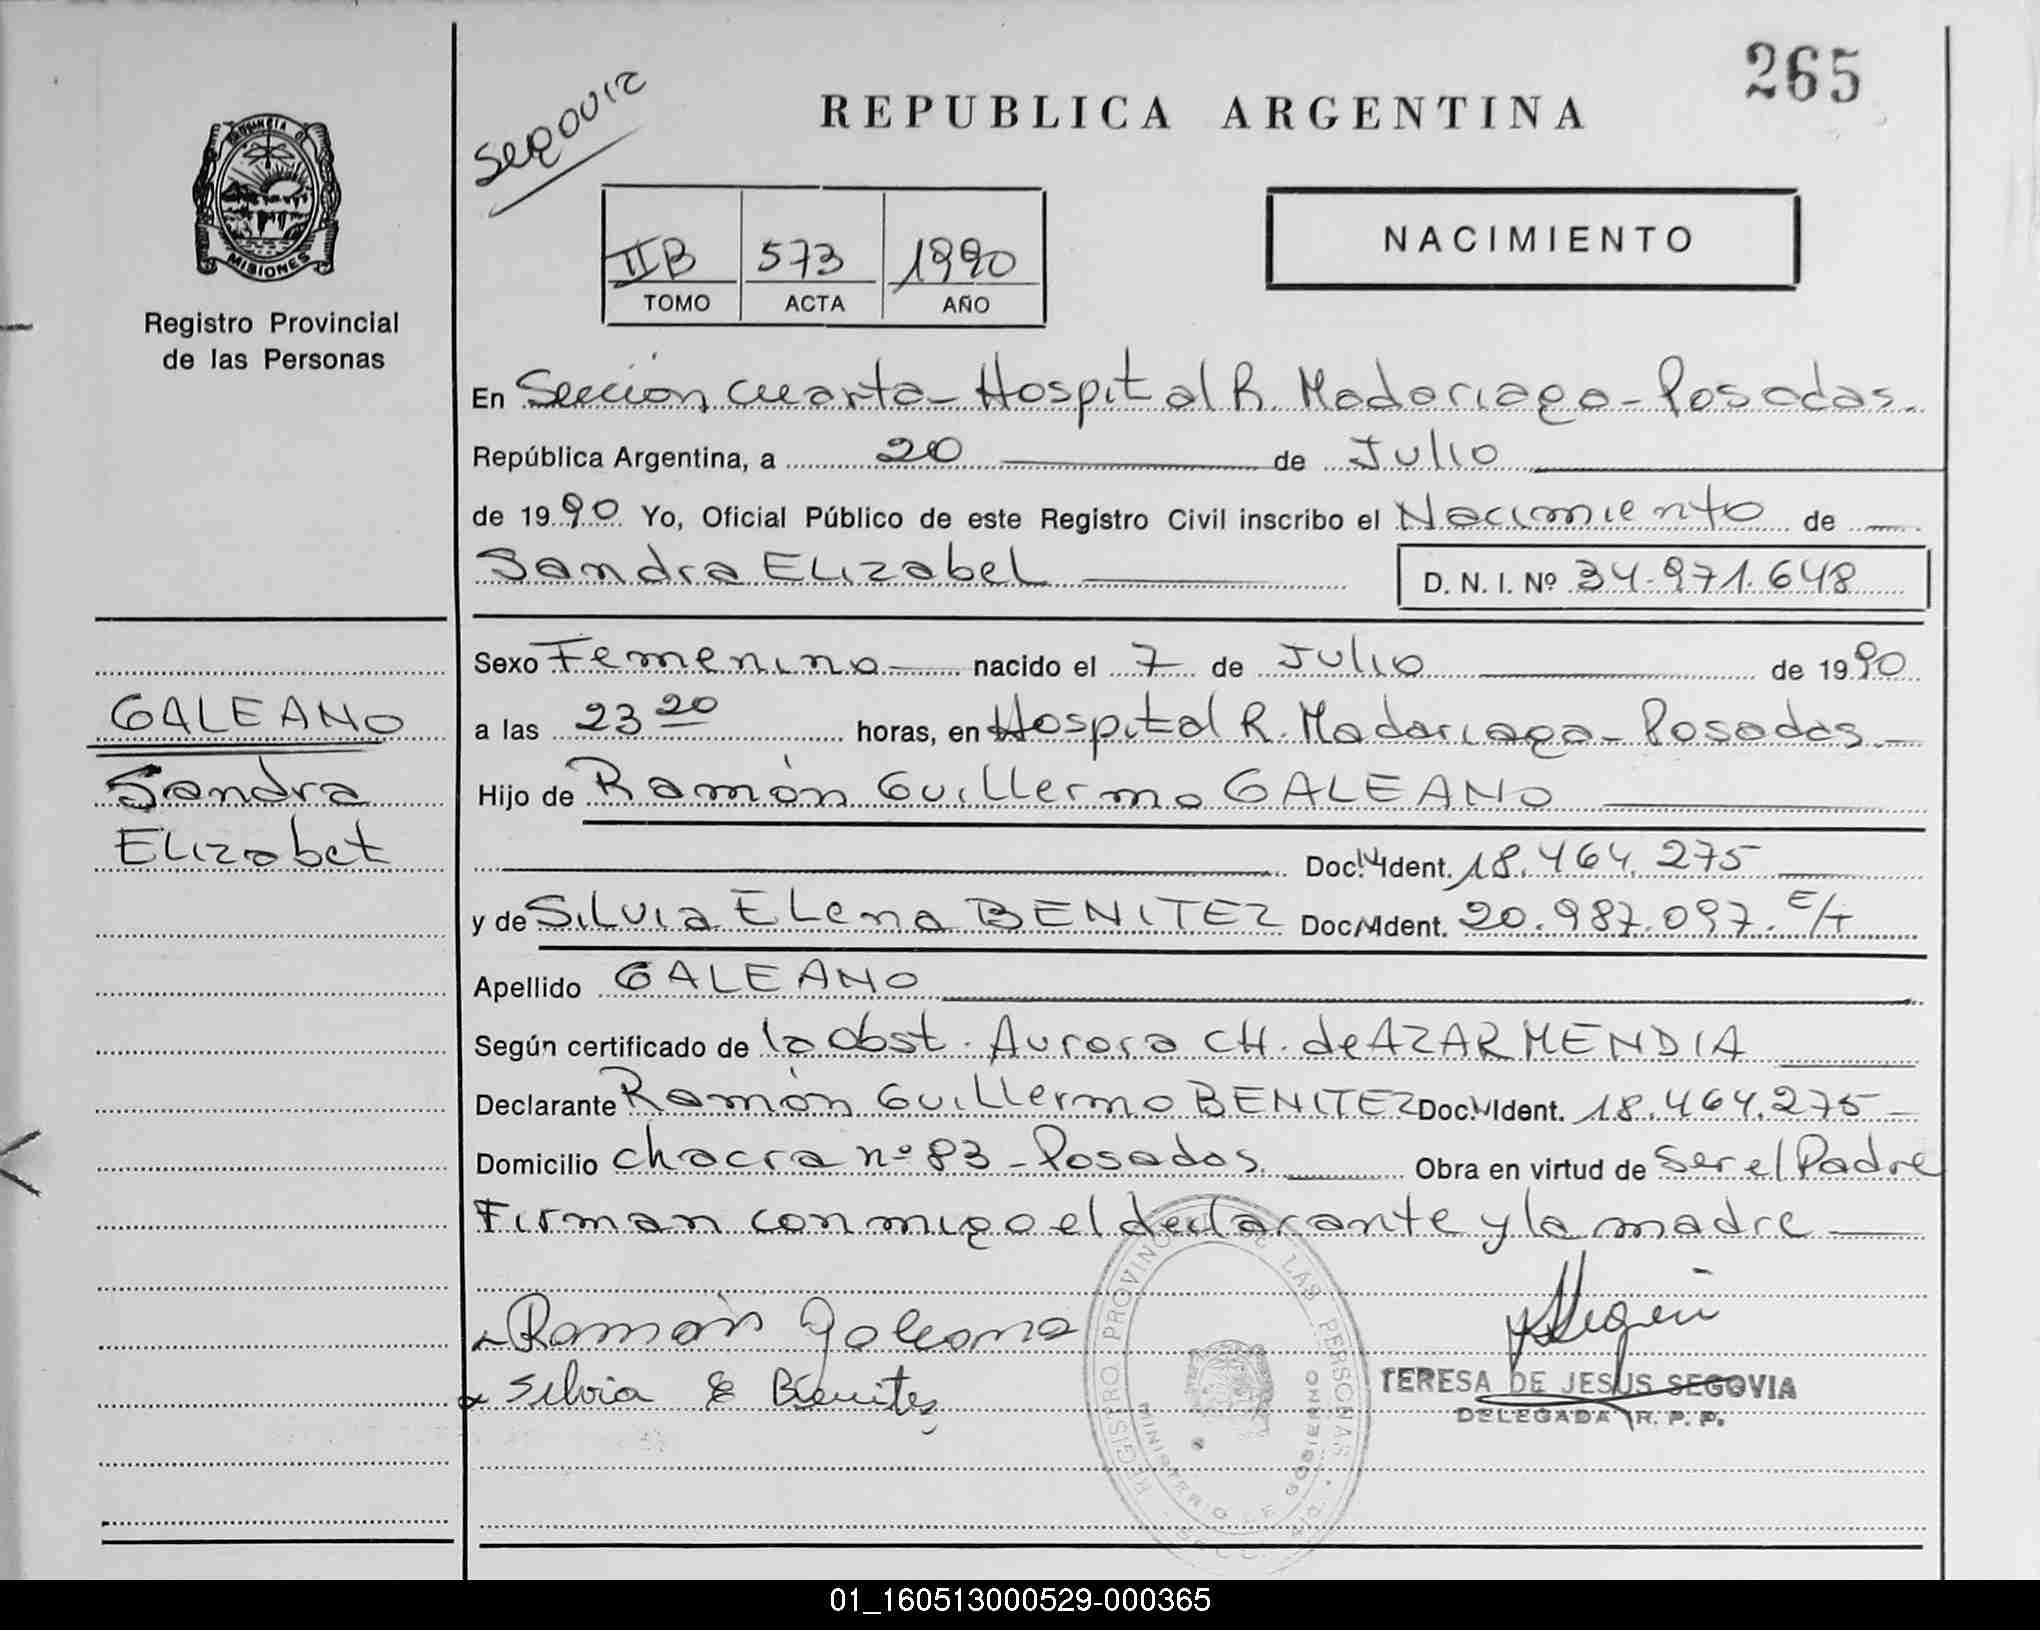 265
REPUBLICA ARGENTINA
PROVINCIA DE
MISIONES
Registro Provincial
de las Personas
IIB 573 1990
TOMO ACTA AÑO
NACIMIENTO
En Sección cuarta - Hospital R. Madariaga - Posadas.
República Argentina, a 20 de Julio
de 1990 Yo, Oficial Público de este Registro Civil inscribo el Nacimiento de
Sandra Elizabel D. N. I. Nº 34.971.648
Sexo Femenino nacido el 7 de Julio de 1990
a las 23 20 horas, en Hospital R. Madariaga - Posadas.
Hijo de Ramón Guillermo GALEANO
Doc. Ident. 18.464.275
y de Silvia Elena BENITEZ Doc. Ident. 20.987.097. E/T
Apellido GALEANO
Según certificado de la Obst. Aurora CH. de AZARMENDIA
Declarante Ramón Guillermo BENITEZ Doc. Ident. 18.464.275
Domicilio chacra nº 83 - Posadas. Obra en virtud de Ser el Padre
Firman conmigo el declarante y la madre
Ramón Galeano
Silvia E Benitez
TERESA DE JESUS SEGOVIA
DELEGADA R. P. P.
REGISTRO PROVINCIAL DE LAS PERSONAS
MINISTERIO DE GOBIERNO
GALEANO
Sandra
Elizabet
01_160513000529-000365